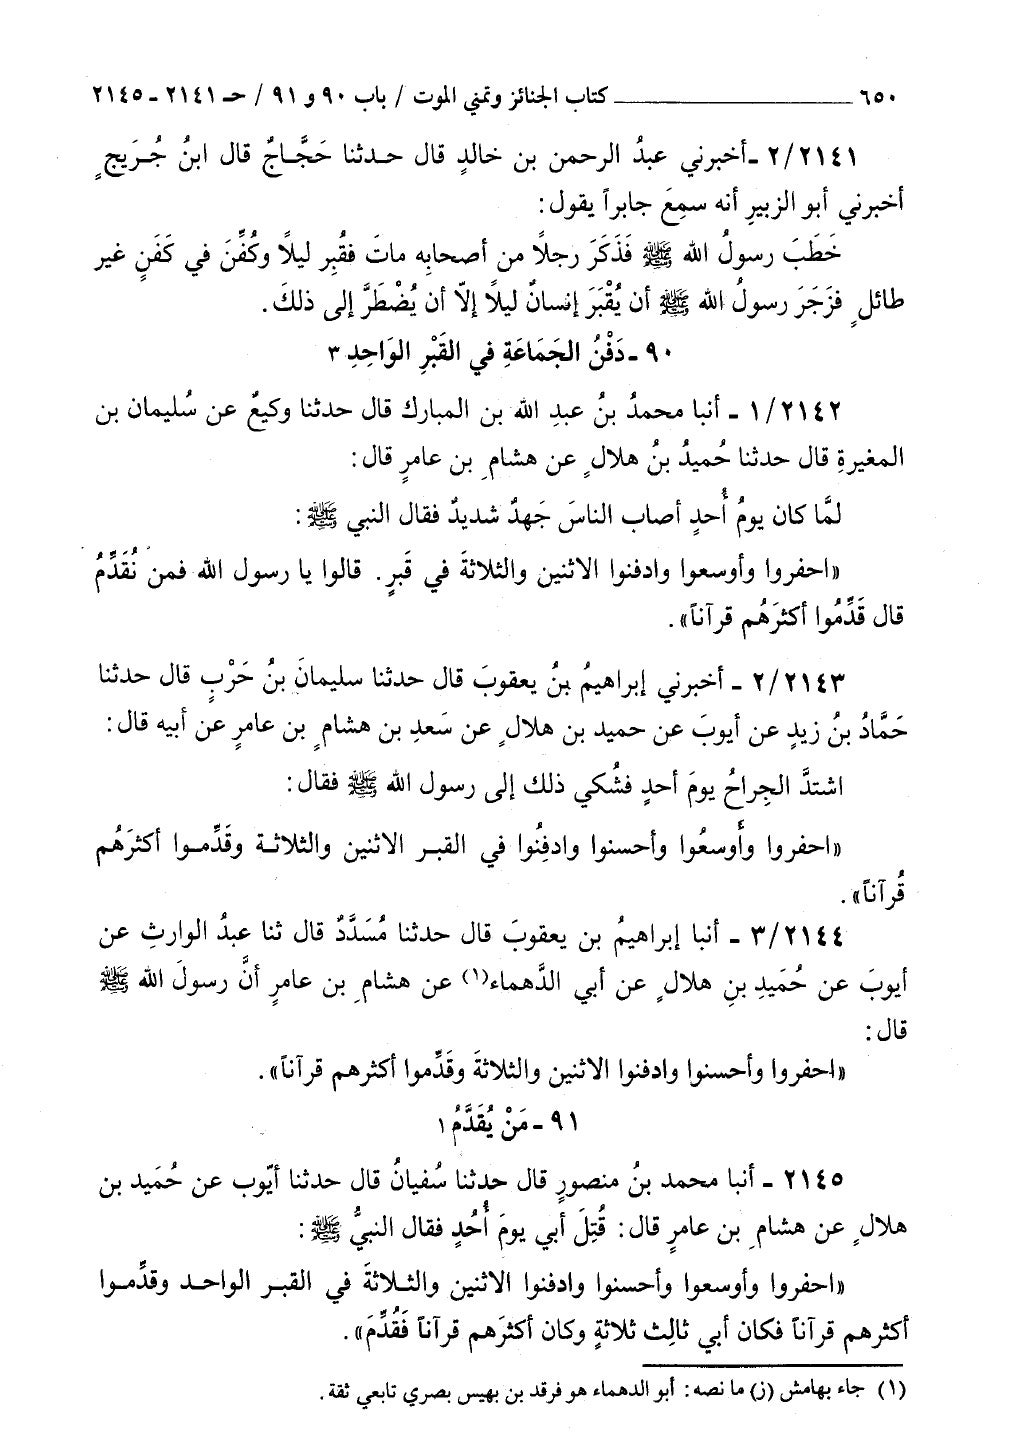 ٦٥٠ ــــــــ كتاب الجنائز وتمني الموت / باب ٩٠ و ٩١ / حـ ٢١٤١ - ٢١٤٥
٢/٢١٤١ - أخبرني عبدُ الرحمن بن خالدٍ قال حـدثنا حَجَّـاجٌ قال ابنُ جُـرَيجٍ
أخبرني أبو الزبيرِ أنه سمِعَ جابراً يقول:
خَطَبَ رسولُ الله ﷺ فَذَكَرَ رجلاً من أصحابِه ماتَ فقُبِر ليلاً وكُفِّنَ في كَفَنٍ غير
طائلٍ فزَجَرَ رسولُ الله ﷺ أن يُقْبَرَ إنسانٌ ليلاً إلاّ أن يُضْطَرَّ إلى ذلكَ.
٩٠ - دَفْنُ الجَمَاعَةِ في القَبْرِ الوَاحِدِ ٣
١/٢١٤٢ - أنبا محمدُ بنُ عبدِ الله بن المبارك قال حدثنا وكيعٌ عن سُليمان بن
المغيرةِ قال حدثنا حُميدُ بنُ هلالٍ عن هشامِ بن عامرٍ قال:
لمَّا كان يومُ أُحدٍ أصاب الناسَ جَهدٌ شديدٌ فقال النبي ﷺ:
«احفروا وأوسعوا وادفنوا الاثنين والثلاثةَ في قَبرٍ. قالوا يا رسول الله فمن نُقَدِّمُ
قال قَدِّمُوا أكثرَهُم قرآناً».
٢/٢١٤٣ - أخبرني إبراهيمُ بنُ يعقوبَ قال حدثنا سليمانَ بنُ حَرْبٍ قال حدثنا
حَمَّادُ بنُ زيدٍ عن أيوبَ عن حميد بن هلالٍ عن سَعدِ بن هشامٍ بن عامرٍ عن أبيه قال:
اشتدَّ الجِراحُ يومَ أحدٍ فشُكي ذلك إلى رسول الله ﷺ فقال:
«احفروا وأَوسعُوا وأحسنوا وادفِنُوا في القبـر الاثنين والثلاثـة وقَدِّمـوا أكثرَهُم
قُرآناً».
٣/٢١٤٤ - أنبا إبراهيمُ بن يعقوبَ قال حدثنا مُسَدَّدٌ قال ثنا عبدُ الوارثِ عن
أيوبَ عن حُمَيدِ بنِ هلالٍ عن أبي الدَّهماء(١) عن هشامِ بن عامرٍ أنَّ رسولَ الله ﷺ
قال:
«احفروا وأحسنوا وادفنوا الاثنين والثلاثةَ وقَدِّموا أكثرهم قرآناً».
٩١ - مَنْ يُقَدَّمُ ١
٢١٤٥ - أنبا محمد بنُ منصورٍ قال حدثنا سُفيانُ قال حدثنا أيّوب عن حُمَيد بن
هلالٍ عن هشامِ بن عامرٍ قال: قُتِلَ أبي يومَ أُحُدٍ فقال النبيُّ ﷺ:
«احفروا وأوسعوا وأحسنوا وادفنوا الاثنين والثـلاثةَ في القبـر الواحـد وقدِّمـوا
أكثرهم قرآناً فكان أبي ثالِث ثلاثةٍ وكان أكثرَهم قرآناً فَقُدِّمَ».
(١) جاء بهامش (ز) ما نصه: أبو الدهماء هو فرقد بن بهيس بصري تابعي ثقة.